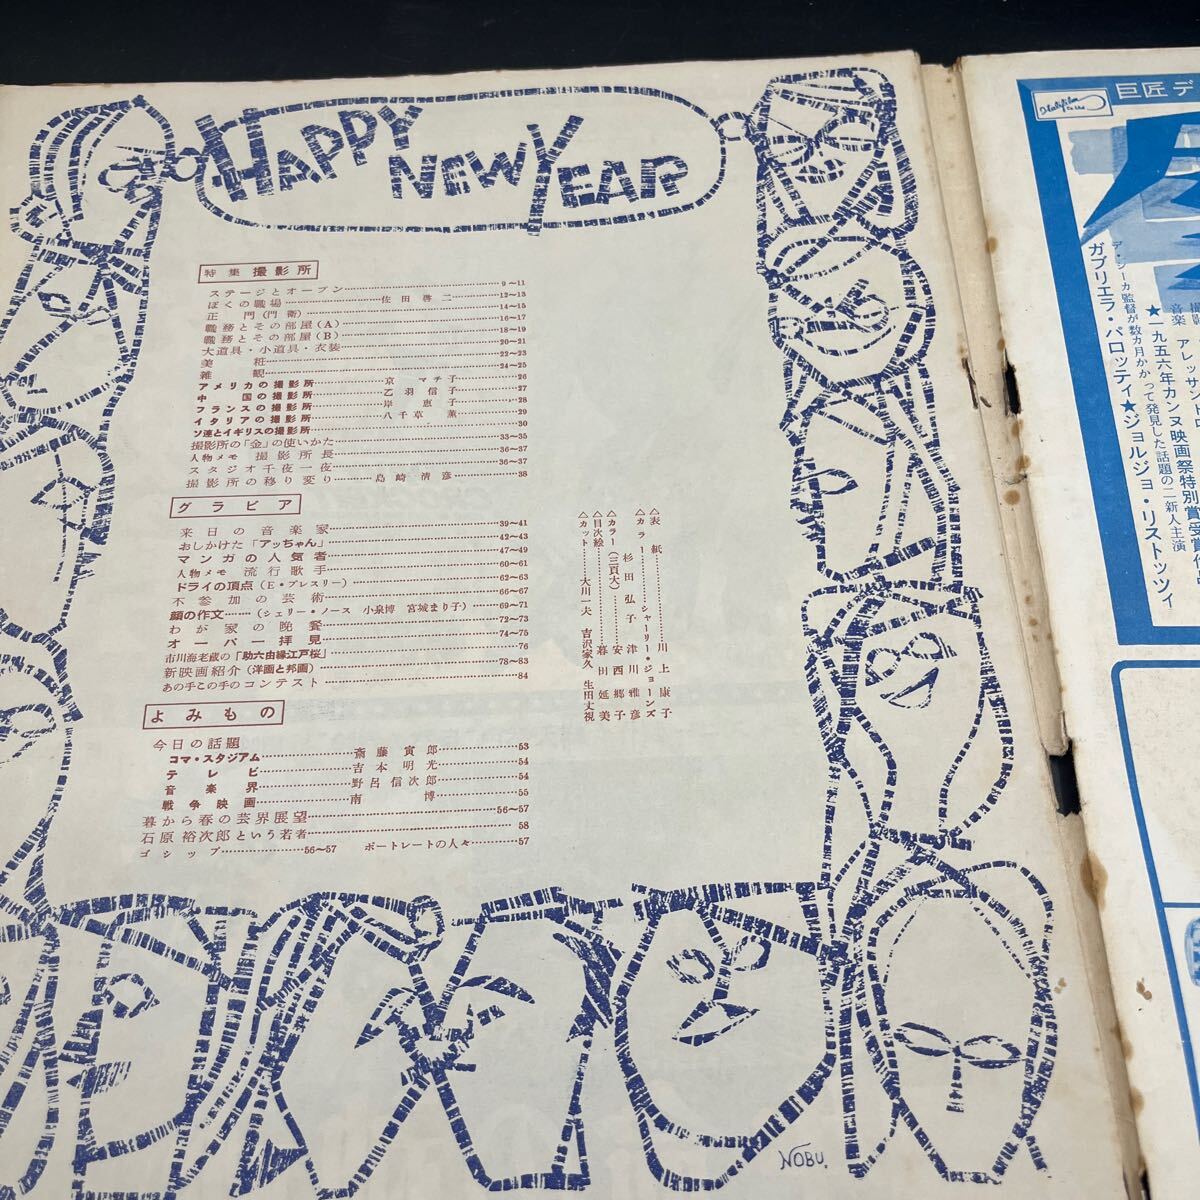 HAPPY NEW YEAR
特集 撮影所
ステージとオープン 9〜11
ぼくの職場 佐田啓二 12〜13
正門(門衛) 14〜15
職務とその部屋(A) 16〜17
職務とその部屋(B) 18〜19
大道具・小道具・衣装 20〜21
美粧 22〜23
雑観 24〜25
アメリカの撮影所 京マチ子 26
中国の撮影所 乙羽信子 27
フランスの撮影所 岸恵子 28
イタリアの撮影所 八千草薫 29
ソ連とイギリスの撮影所 30
撮影所の「金」の使いかた 33〜35
人物メモ 撮影所長 36〜37
スタジオ千夜一夜 36〜37
撮影所の移り変り 島崎清彦 38
グラビア
来日の音楽家 39〜41
おしかけた「アッちゃん」 42〜43
マンガの人気者 47〜49
人物メモ 流行歌手 60〜61
ドライの頂点(E・プレスリー) 62〜63
不参加の芸術 66〜67
顔の作文……(シェリー・ノース 小泉博 宮城まり子) 69〜71
わが家の晩餐 72〜73
オーバー拝見 74〜75
市川海老蔵の「助六由縁江戸桜」 76
新映画紹介(洋画と邦画) 78〜83
あの手この手のコンテスト 84
よみもの
今日の話題
コマ・スタジアム 斎藤寅郎 53
テレビ 吉本明光 54
音楽界 野呂信次郎 54
戦争映画 南博 55
暮から春の芸界展望 56〜57
石原裕次郎という若者 58
ゴシップ 56〜57 ポートレートの人々 57
△表紙 川上康子
△カラー シャーリー・ジョーンズ
杉田弘子 津川雅彦
△カラー(三頁大) 安西郷子
△目次絵 暮田延美
△カット 大川一夫 吉沢家久 生田丈視
NOBU.
Italifilm
巨匠デ
音楽 アレッサン
★一九五六年カンヌ映画祭特別賞受賞作
デ・シーカ監督が数カ月かかって発見した話題の二新人主演
ガブリエラ・パロッティ★ジョルジョ・リストッツィ